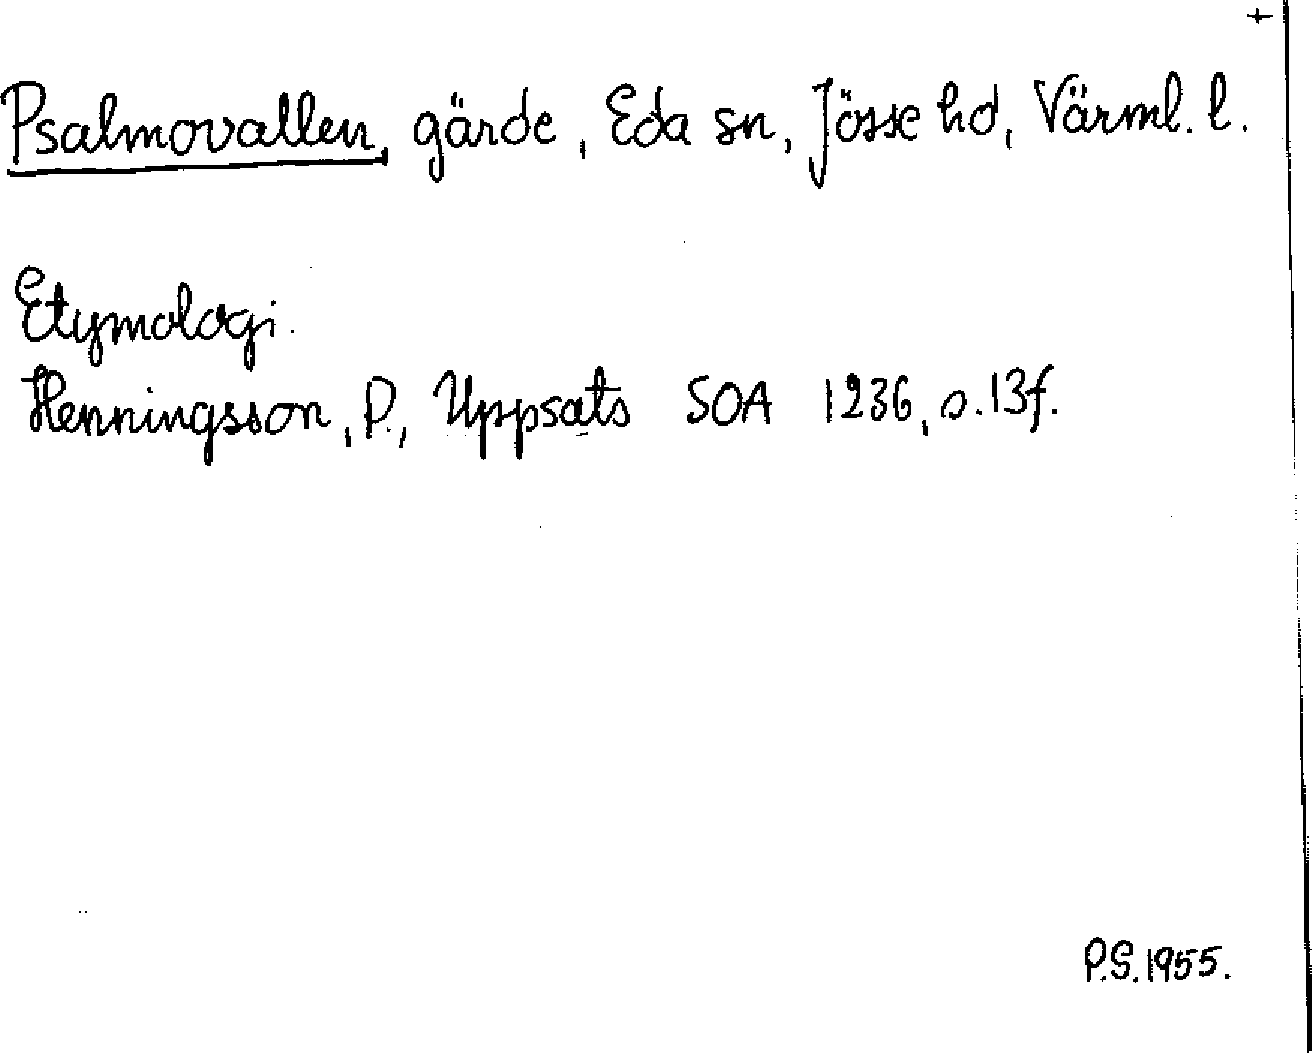 +
Psalmovallen, gärde, Eda sn, Jösse hd, Värml. l.
Etymologi.
Henningsson, P., Uppsats SOA 1236, s. 13f.
P.S. 1955.